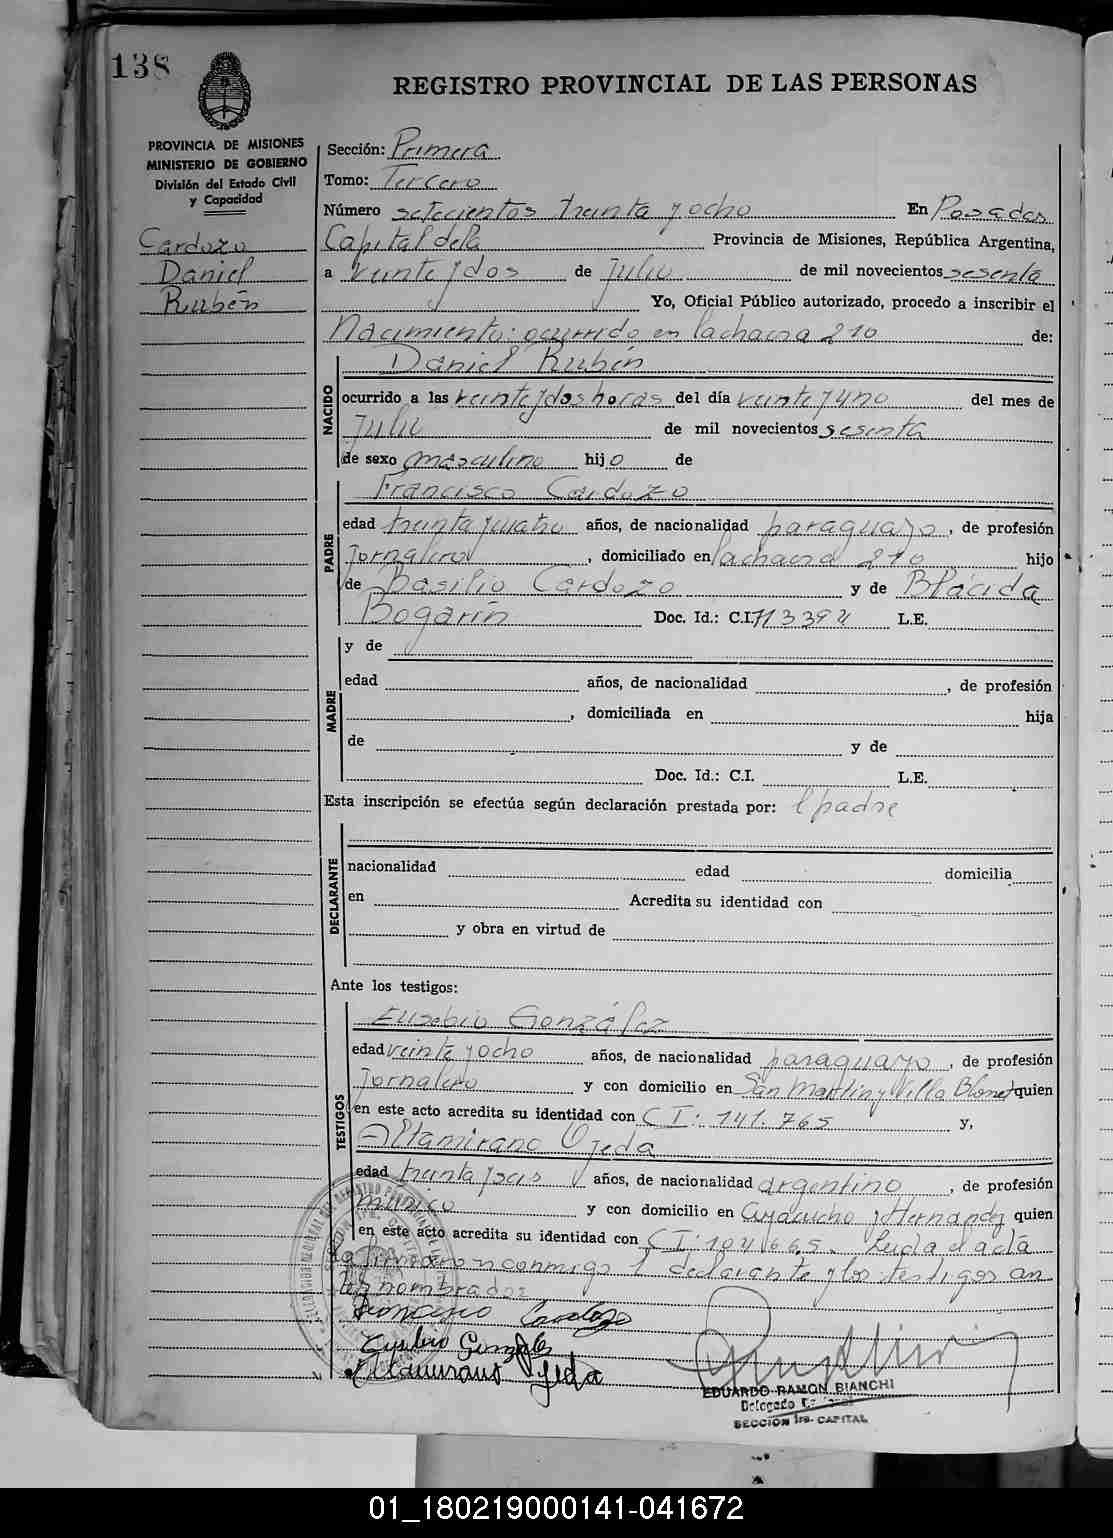 138
REGISTRO PROVINCIAL DE LAS PERSONAS
PROVINCIA DE MISIONES
MINISTERIO DE GOBIERNO
División del Estado Civil
y Capacidad
Cardozo
Daniel
Rubén
Sección: Primera
Tomo: Tercero
Número setecientos treinta y ocho En Posadas
Capital de la Provincia de Misiones, República Argentina,
a veinte y dos de julio de mil novecientos sesenta
Yo, Oficial Público autorizado, procedo a inscribir el
Nacimiento: ocurrido en la chacra 210 de:
NACIDO
Daniel Rubén
ocurrido a las veinte y dos horas del día veinte y uno del mes de
Julio de mil novecientos sesenta
de sexo masculino hijo de
PADRE
Francisco Cardozo
edad treinta y cuatro años, de nacionalidad paraguayo, de profesión
Jornalero, domiciliado en la chacra 210 hijo
de Basilio Cardozo y de Blácida
Bogarín Doc. Id.: C.I. 713394 L.E.
MADRE
y de
edad años, de nacionalidad , de profesión
, domiciliada en hija
de y de
Doc. Id.: C.I. L.E.
Esta inscripción se efectúa según declaración prestada por: el padre
DECLARANTE
nacionalidad edad domicilia
en Acredita su identidad con
y obra en virtud de
Ante los testigos:
TESTIGOS
Eusebio González
edad veinte y ocho años, de nacionalidad paraguayo, de profesión
Jornalero y con domicilio en San Martin y Villa Blanes quien
en este acto acredita su identidad con C I: 141.765 y,
Altamirano Ojeda
edad treinta y seis años, de nacionalidad argentino, de profesión
y con domicilio en Ayacucho y Hernandez quien
en este acto acredita su identidad con C I: 104.665. Leida el acta
la firmaron conmigo el declarante y los testigos an
tes nombrados
Francisco Cardozo
Eusebio González
Altamirano Ojeda
EDUARDO RAMON BIANCHI
Delegado
SECCIÓN 1ra. CAPITAL
01_180219000141-041672